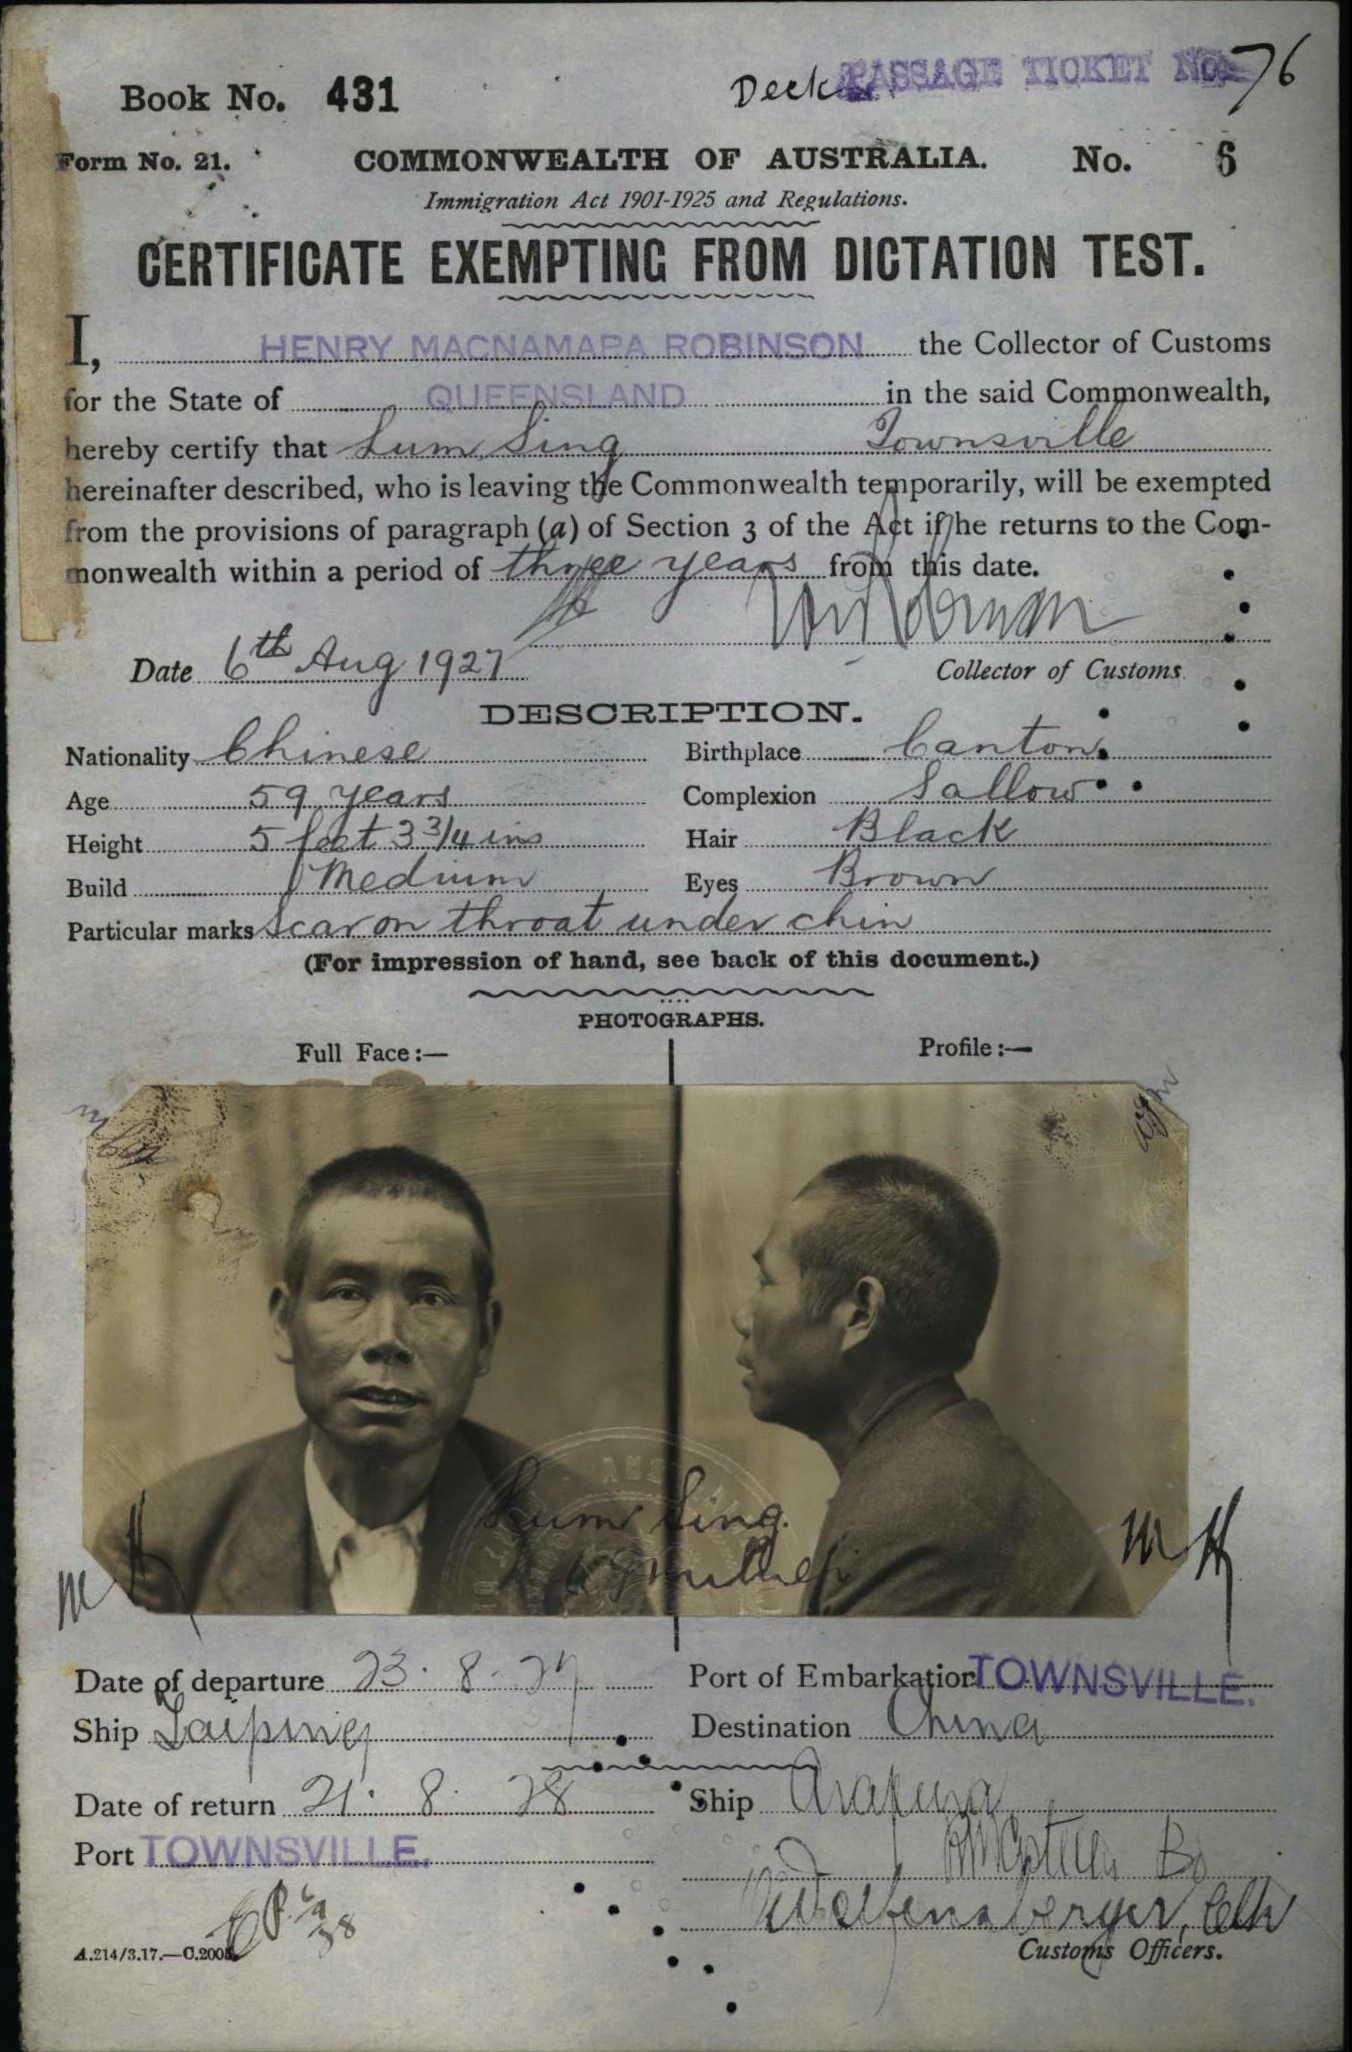 Deck PASSAGE TICKET No. 76
Book No. 431
Form No. 21. COMMONWEALTH OF AUSTRALIA. No. 6
Immigration Act 1901-1925 and Regulations.
CERTIFICATE EXEMPTING FROM DICTATION TEST.
I, HENRY MACNAMARA ROBINSON the Collector of Customs
for the State of QUEENSLAND in the said Commonwealth,
hereby certify that Lum Sing Townsville
hereinafter described, who is leaving the Commonwealth temporarily, will be exempted
from the provisions of paragraph (a) of Section 3 of the Act if he returns to the Com-
monwealth within a period of three years from this date.
Date 6th Aug 1927 Collector of Customs.
DESCRIPTION.
Nationality Chinese Birthplace Canton
Age 59 years Complexion Sallow
Height 5 feet 3 3/4 ins Hair Black
Build Medium Eyes Brown
Particular marks Scar on throat under chin
(For impression of hand, see back of this document.)
PHOTOGRAPHS.
Full Face:— Profile:—
Lum Sing.
M H M H
Date of departure 23. 8. 27 Port of Embarkation TOWNSVILLE.
Ship Taiping Destination China
Date of return 21. 8. 28 Ship Arafura
Port TOWNSVILLE.
A.214/3.17.—C.2005. Customs Officers.